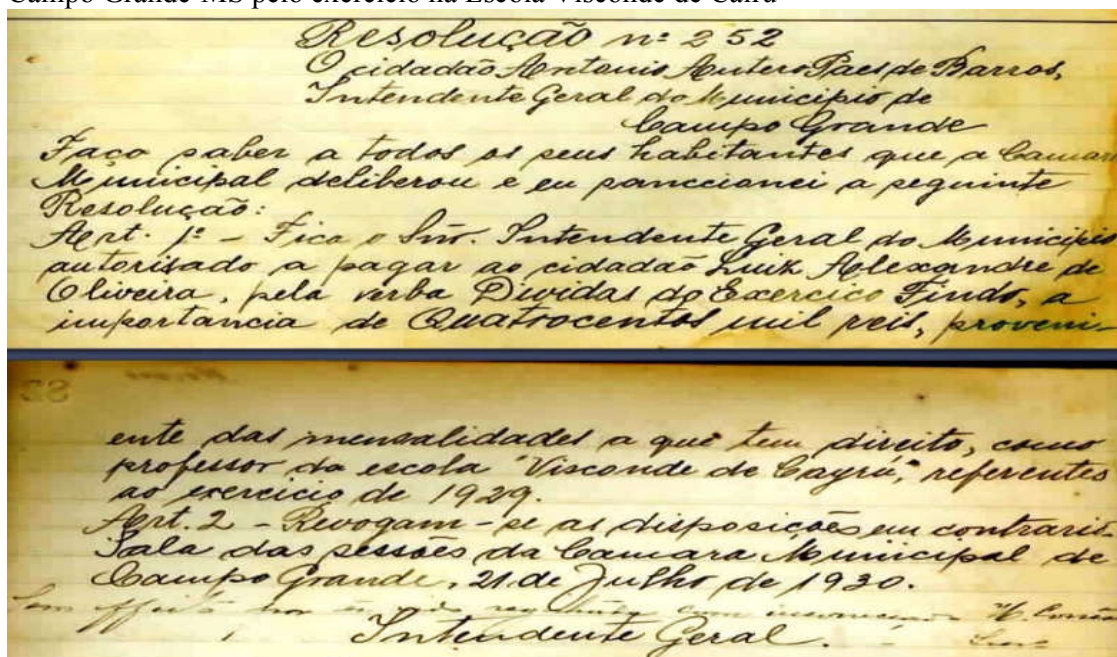 Campo Grande-MS pelo exercício na Escola Visconde de Cairu
Resolução nº 252
O cidadão Antonio Antero Paes de Barros,
Intendente Geral do Municipio de
Campo Grande
Faço saber a todos os seus habitantes que a Camara
Municipal deliberou e eu sanccionei a seguinte
Resolução:
Art. 1º - Fica o Snr. Intendente Geral do Municipio
autorisado a pagar ao cidadão Luiz Alexandre de
Oliveira, pela verba Dividas do Exercico Findo, a
importancia de Quatrocentos mil reis, proveni-
ente das mensalidades a que tem direito, como
professor da escola "Visconde de Cayrú", referentes
ao exercicio de 1929.
Art. 2 - Revogam-se as disposições em contrario.
Sala das sessões da Camara Municipal de
Campo Grande, 21 de Julho de 1930.
Sem effeito
Intendente Geral.